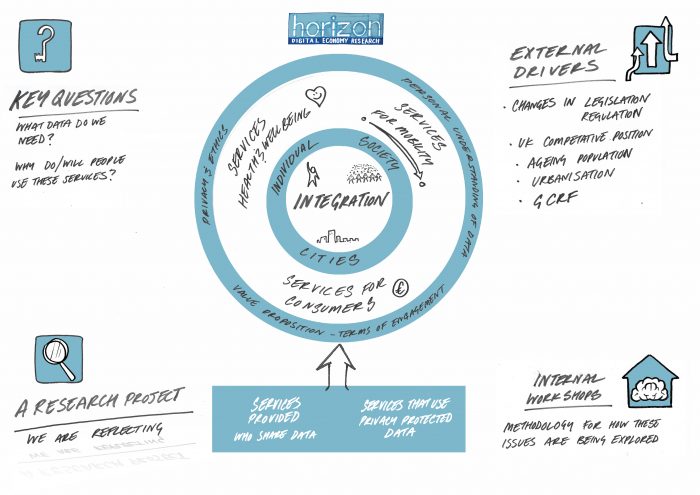 horizon
DIGITAL ECONOMY RESEARCH
KEY QUESTIONS
WHAT DATA DO WE
NEED?
WHY DO/WILL PEOPLE
USE THESE SERVICES?
EXTERNAL
DRIVERS
• CHANGES IN LEGISLATION
REGULATION
• UK COMPETATIVE POSITION
• AGEING POPULATION
URBANISATION
• GCRF
PRIVACY & ETHICS
PERSONAL UNDERSTANDING OF DATA
VALUE PROPOSITION - TERMS OF ENGAGEMENT
SERVICES
HEALTH & WELLBEING
SERVICES
FOR MOBILITY
SERVICES FOR
CONSUMERS £
INDIVIDUAL
SOCIETY
CITIES
INTEGRATION
A RESEARCH PROJECT
WE ARE REFLECTING
WE ARE REFLECTING
A RESEARCH PROJECT
SERVICES
PROVIDED
WHO SHARE DATA
SERVICES THAT USE
PRIVACY PROTECTED
DATA
INTERNAL
WORKSHOPS
METHODOLOGY FOR HOW THESE
ISSUES ARE BEING EXPLORED